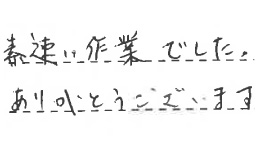 素速い作業でした。
ありがとうございます